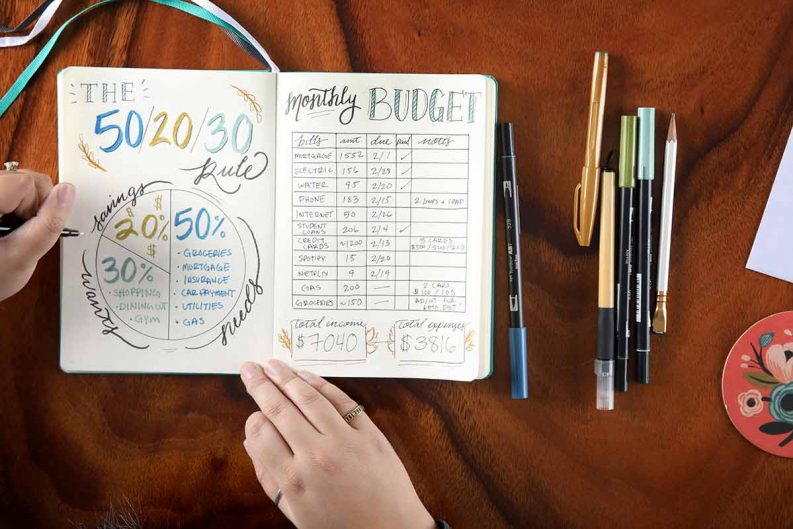 THE
50/20/30
Rule
savings
20%
$
$
$
$
50%
• GROCERIES
• MORTGAGE
• INSURANCE
• CAR PAYMENT
• UTILITIES
• GAS
needs
30%
• SHOPPING
• DINING OUT
• GYM
wants
monthly BUDGET
bills amt due paid notes
MORTGAGE 1552 2/1 ✓
ELECTRIC 156 2/28 ✓
WATER 95 2/20 ✓
PHONE 183 2/15 2 LINES + IPAD
INTERNET 50 2/26
STUDENT LOANS 206 2/4 ✓
CREDIT CARDS ~1200 2/13 3 CARDS
SPOTIFY 15 2/20
NETFLIX 9 2/19
GAS 200 — 2 CARS
GROCERIES ~150 —
total income
$7040
total expenses
$3816